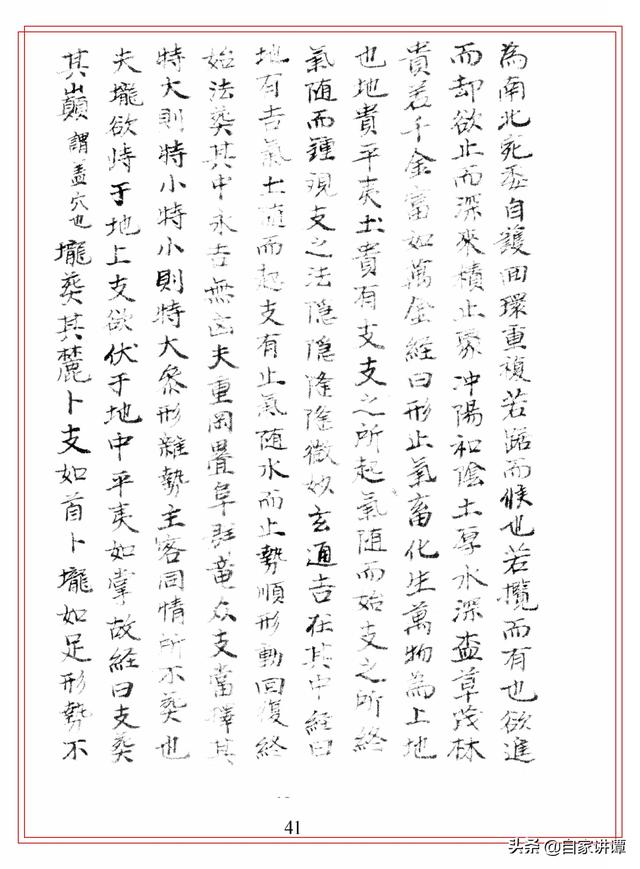 為南北宛委自護回環重複若踞而候也若攬而有也欲進
而却欲止而深來積止聚冲陽和陰土厚水深草茂林
貴若千金富如萬金經曰形止氣畜化生萬物為上地
也地貴平夷土貴有支支之所起氣随而始支之所終
氣随而鍾現支之法隠隠隆隆微妙玄通吉在其中經曰
地有吉氣土随而起支有止氣随水而止勢順形動回復終
始法葬其中永吉無凶夫重岡疊阜群众支當擇其
特大則特小特小則特大叅形雜勢主客同情所不葬也
夫壠欲峙于地上支欲伏于地中平夷如掌故經曰支葬
其巔謂盖穴也壠葬其麓卜支如首卜壠如足形勢不
41
头条 @自家讲谭